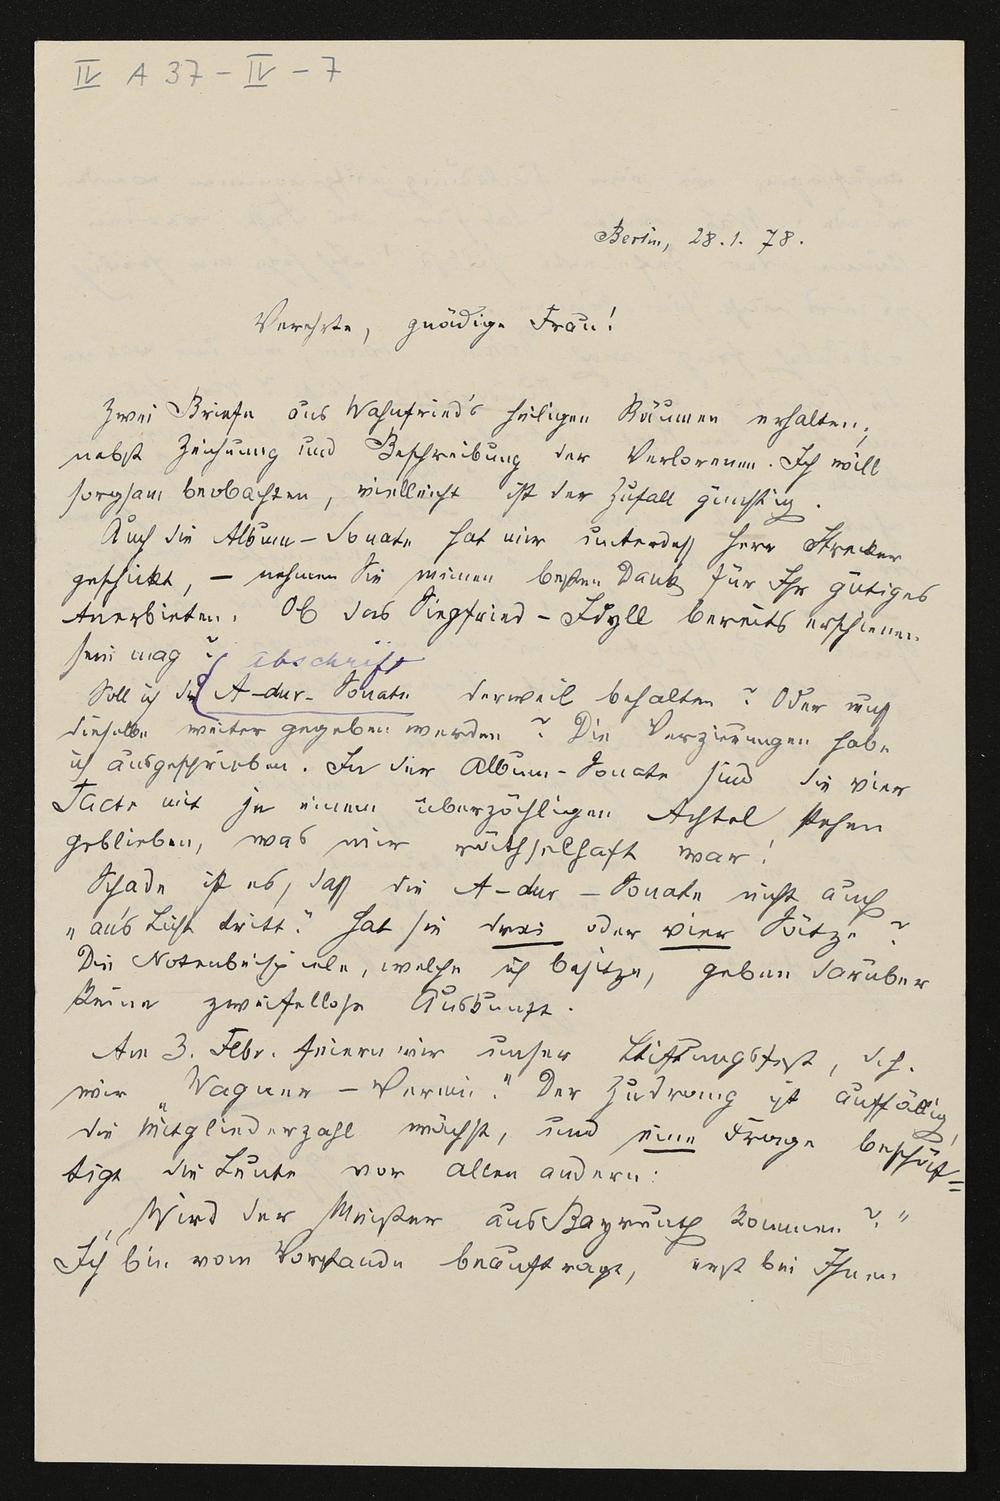 IV A 37 - IV - 7
Berlin, 28.1.78.
Verehrte, gnädige Frau!
Zwei Briefe aus Wahnfried's heiligen Räumen erhalten,
nebst Zeichnung und Beschreibung der Verlorenen. Ich will
sorgsam beobachten, vielleicht ist der Zufall günstig.
Auch die Album-Sonate hat mir unterdeß Herr Strecker
geschickt, – nehmen Sie meinen besten Dank für Ihr gütiges
Anerbieten. Ob das Siegfried-Idyll bereits erschienen
sein mag?
Abschrift
Soll ich die A-dur-Sonate derweil behalten? Oder muß
dieselbe weiter gegeben werden? Die Verzierungen habe
ich ausgeschrieben. In der Album-Sonate sind die vier
Tacte mit je einem überzähligen Achtel stehen
geblieben, was mir räthselhaft war!
Schade ist es, daß die A-dur-Sonate nicht auch
„an's Licht tritt." Hat sie drei oder vier Sätze?
Die Notenbeispiele, welche ich besitze, geben darüber
keine zweifellose Auskunft.
Am 3. Febr. feiern wir unser Stiftungsfest, d.h.
wir „Wagner-Verein." Der Zudrang ist auffällig,
die Mitgliederzahl wächst, und eine Frage beschäf=
tigt die Leute vor allen andern:
„Wird der Meister aus Bayreuth kommen?"
Ich bin vom Vorstande beauftragt, erst bei Ihnen